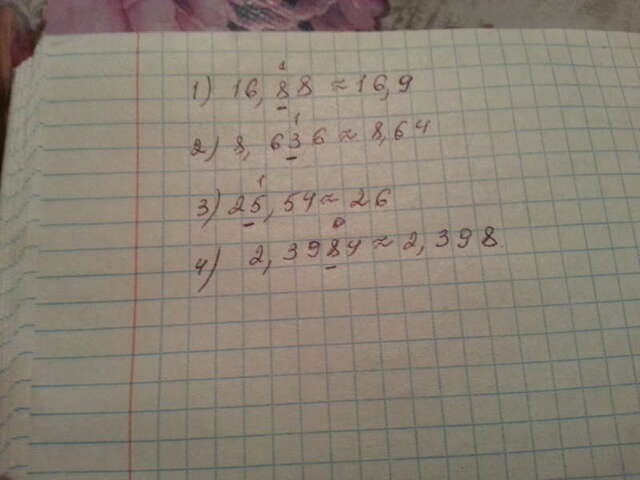 1) 16,88 ≈ 16,9
2) 8,636 ≈ 8,64
3) 25,54 ≈ 26
4) 2,3984 ≈ 2,398